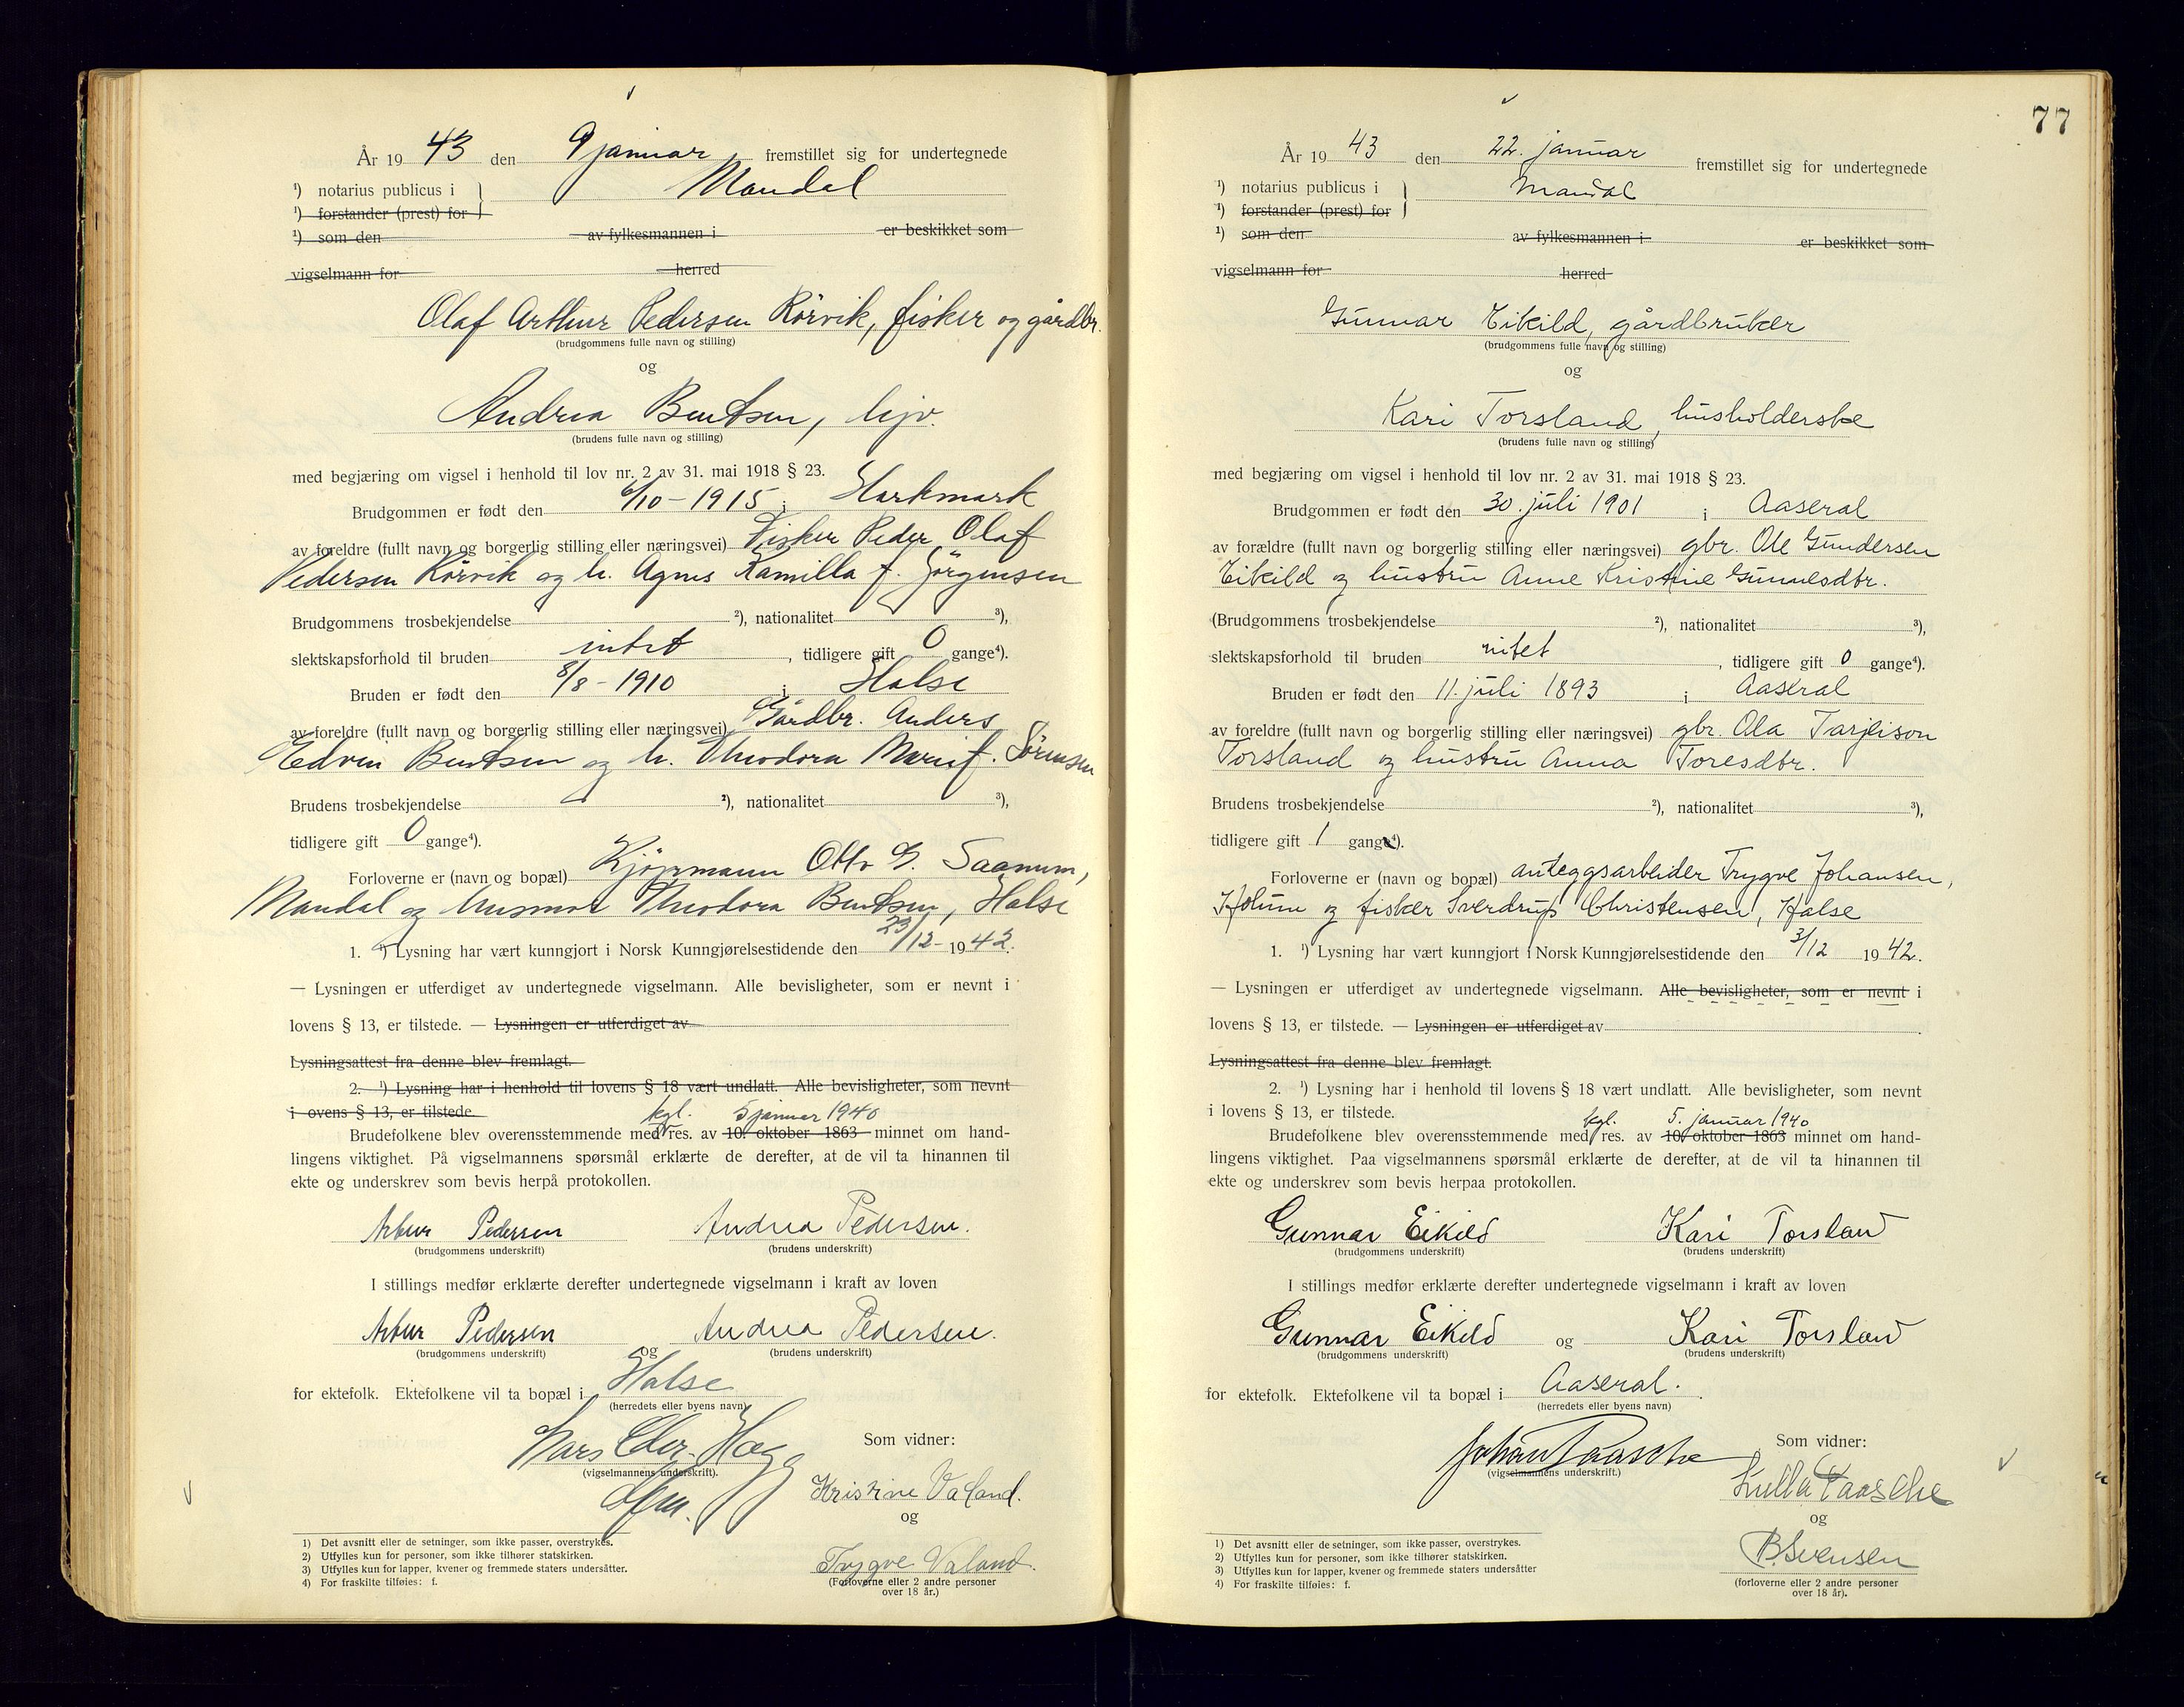 År 19 43 den 9 januar fremstillet sig for undertegnede
¹) notarius publicus i } Mandal
¹) forstander (prest) for
¹) som den av fylkesmannen i er beskikket som
vigselmann for herred
Olaf Arthur Pedersen Rörvik, fisker og gårdbr.
(brudgommens fulle navn og stilling)
og
Andrea Bentsen, hjv.
(brudens fulle navn og stilling)
med begjæring om vigsel i henhold til lov nr. 2 av 31. mai 1918 § 23.
Brudgommen er født den 6/10 - 1915 i Harkmark
av foreldre (fullt navn og borgerlig stilling eller næringsvei) Fisker Peder Olaf
Pedersen Rörvik og h. Agnes Kamilla f. Jörgensen
Brudgommens trosbekjendelse ²), nationalitet ³),
slektskapsforhold til bruden intet, tidligere gift 0 gange⁴).
Bruden er født den 8/8 - 1910 i Halse
av foreldre (fullt navn og borgerlig stilling eller næringsvei) Gårdbr. Anders
Edvin Bentsen og h. Theodora Marie f. Sörensen
Brudens trosbekjendelse ²), nationalitet ³),
tidligere gift 0 gange⁴).
Forloverne er (navn og bopæl) Kjöpmann Otto G. Saanum,
Mandal og husmor Theodora Bentsen, Halse
1. ¹) Lysning har vært kunngjort i Norsk Kunngjørelsestidende den 23/12- 19 42.
— Lysningen er utferdiget av undertegnede vigselmann. Alle bevisligheter, som er nevnt i
lovens § 13, er tilstede. — Lysningen er utferdiget av
Lysningsattest fra denne blev fremlagt.
2. ¹) Lysning har i henhold til lovens § 18 vært undlatt. Alle bevisligheter, som nevnt
i ovens § 13, er tilstede.
kgl. 5 januar 1940
Brudefolkene blev overensstemmende med res. av 10. oktober 1863 minnet om hand-
lingens viktighet. På vigselmannens spørsmål erklærte de derefter, at de vil ta hinannen til
ekte og underskrev som bevis herpå protokollen.
Artur Pedersen Andrea Pedersen.
(brudgommens underskrift) (brudens underskrift)
I stillings medfør erklærte derefter undertegnede vigselmann i kraft av loven
Artur Pedersen og Andrea Pedersen.
(brudgommens underskrift) (brudens underskrift)
for ektefolk. Ektefolkene vil ta bopæl i Halse
(herredets eller byens navn)
Som vidner:
(vigselmannens underskrift).
Kristine Valand.
og
Trygve Valand.
(Forloverne eller 2 andre personer
over 18 år.)
1) Det avsnitt eller de setninger, som ikke passer, overstrykes.
2) Utfylles kun for personer, som ikke tilhører statskirken.
3) Utfylles kun for lapper, kvener og fremmede staters undersåtter.
4) For fraskilte tilføies: f.
77
År 19 43 den 22. januar fremstillet sig for undertegnede
¹) notarius publicus i } Mandal
¹) forstander (prest) for
¹) som den av fylkesmannen i er beskikket som
vigselmann for herred
Gunnar Eikild, gårdbruker
(brudgommens fulle navn og stilling)
og
Kari Torsland, husholderske
(brudens fulle navn og stilling)
med begjæring om vigsel i henhold til lov nr. 2 av 31. mai 1918 § 23.
Brudgommen er født den 30. juli 1901 i Aaseral
av forældre (fullt navn og borgerlig stilling eller næringsvei) gbr. Ole Gundersen
Eikild og hustru Anne Kristine Gunnesdtr.
(Brudgommens trosbekjendelse ²), nationalitet ³),
slektskapsforhold til bruden intet, tidligere gift 0 gange⁴).
Bruden er født den 11. juli 1893 i Aaseral
av foreldre (fullt navn og borgerlig stilling eller næringsvei) gbr. Ola Tarjeison
Torsland og hustru Anna Toresdtr.
Brudens trosbekjendelse ²), nationalitet ³),
tidligere gift 1 gang⁴).
Forloverne er (navn og bopæl) anleggsarbeider Trygve Johansen,
Holum og fisker Sverdrup Christensen, Halse
1. ¹) Lysning har vært kunngjort i Norsk Kunngjørelsestidende den 3/12 19 42.
— Lysningen er utferdiget av undertegnede vigselmann. Alle bevisligheter, som er nevnt i
lovens § 13, er tilstede. — Lysningen er utferdiget av
Lysningsattest fra denne blev fremlagt.
2. ¹) Lysning har i henhold til lovens § 18 vært undlatt. Alle bevisligheter, som nevnt
i lovens § 13, er tilstede.
kgl. 5. januar 1940
Brudefolkene blev overensstemmende med res. av 10. oktober 1863 minnet om hand-
lingens viktighet. Paa vigselmannens spørsmål erklærte de derefter, at de vil ta hinannen til
ekte og underskrev som bevis herpaa protokollen.
Gunnar Eikild Kari Torsland
(brudgommens underskrift) (brudens underskrift)
I stillings medfør erklærte derefter undertegnede vigselmann i kraft av loven
Gunnar Eikild og Kari Torsland
(brudgommens underskrift) (brudens underskrift)
for ektefolk. Ektefolkene vil ta bopæl i Aaseral.
(herredets eller byens navn)
Johan Paasche
Som vidner:
(vigselmannens underskrift.)
Paasche
og
B. Svensen
(forloverne eller 2 andre personer
over 18 år).
1) Det avsnitt eller de setninger, som ikke passer, overstrykes.
2) Utfylles kun for personer, som ikke tilhører statskirken.
3) Utfylles kun for lapper, kvener og fremmede staters undersåtter
4) For fraskilte tilføies: f.